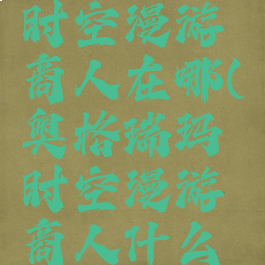 时空漫游
商人在哪(
奥格瑞玛
时空漫游
商人什么